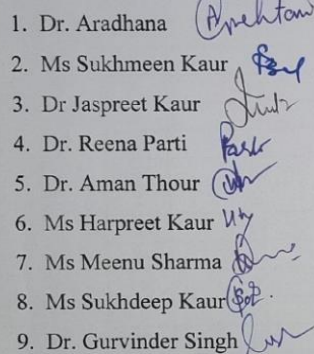 1. Dr. Aradhana
2. Ms Sukhmeen Kaur
3. Dr Jaspreet Kaur
4. Dr. Reena Parti
5. Dr. Aman Thour
6. Ms Harpreet Kaur
7. Ms Meenu Sharma
8. Ms Sukhdeep Kaur
9. Dr. Gurvinder Singh